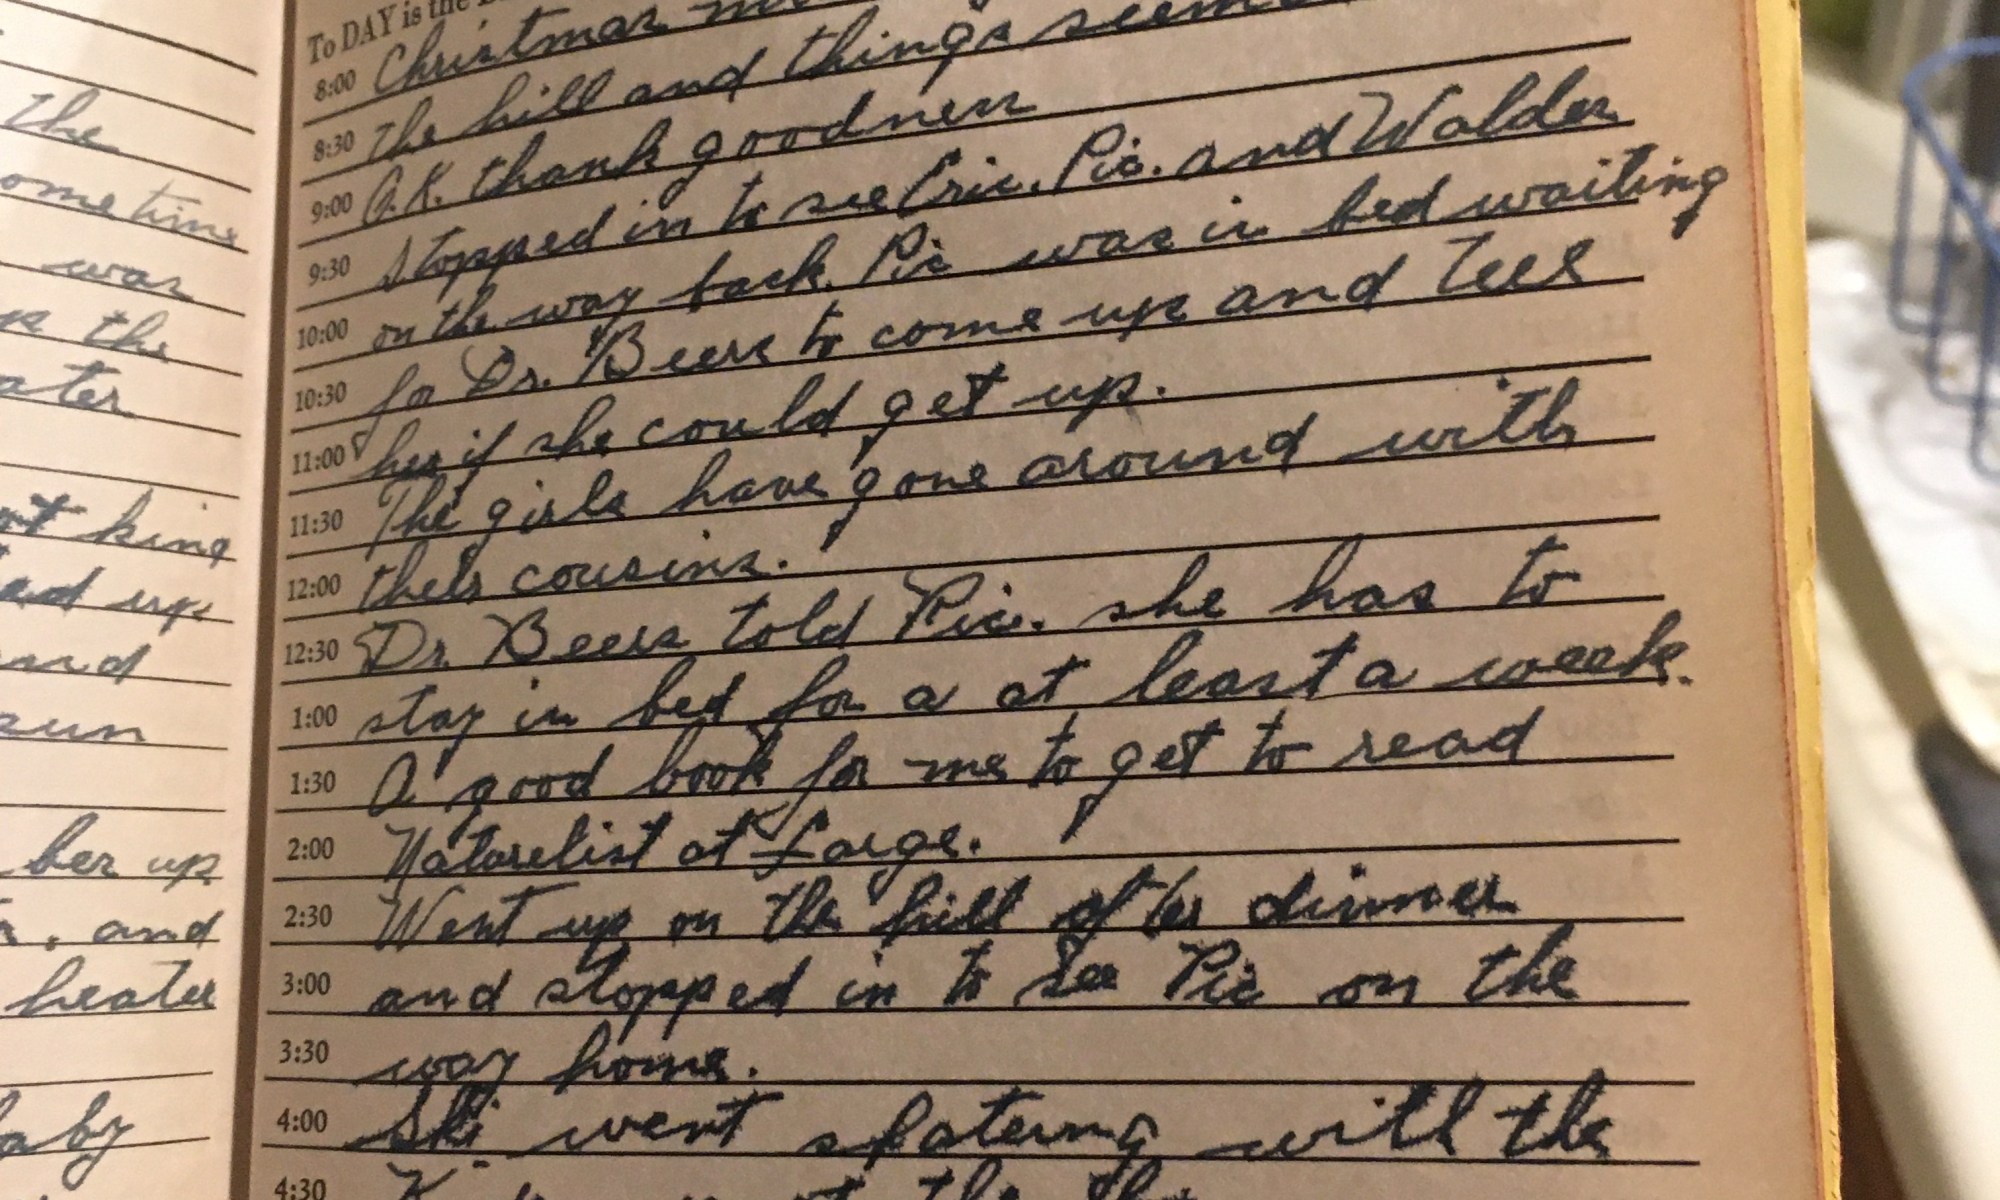 the
ometime
was
the
ater
king
ad up
and
sun
ber up
, and
heater
aby
To DAY is the
8:00 Christmas
8:30 the hill and things seem
9:00 O.K. thank goodness
9:30 Stopped in to see Eric. Pic. and Walder
10:00 on the way back. Pic was in bed waiting
10:30 for Dr. Beers to come up and tell
11:00 her if she could get up.
11:30 The girls have gone around with
12:00 their cousins.
12:30 Dr. Beers told Pic. she has to
1:00 stay in bed for a at least a week.
1:30 A good book for me to get to read
2:00 Naturelist at Large.
2:30 Went up on the hill after dinner
3:00 and stopped in to see Pic on the
3:30 way home.
4:00 Ski went skatering with the
4:30